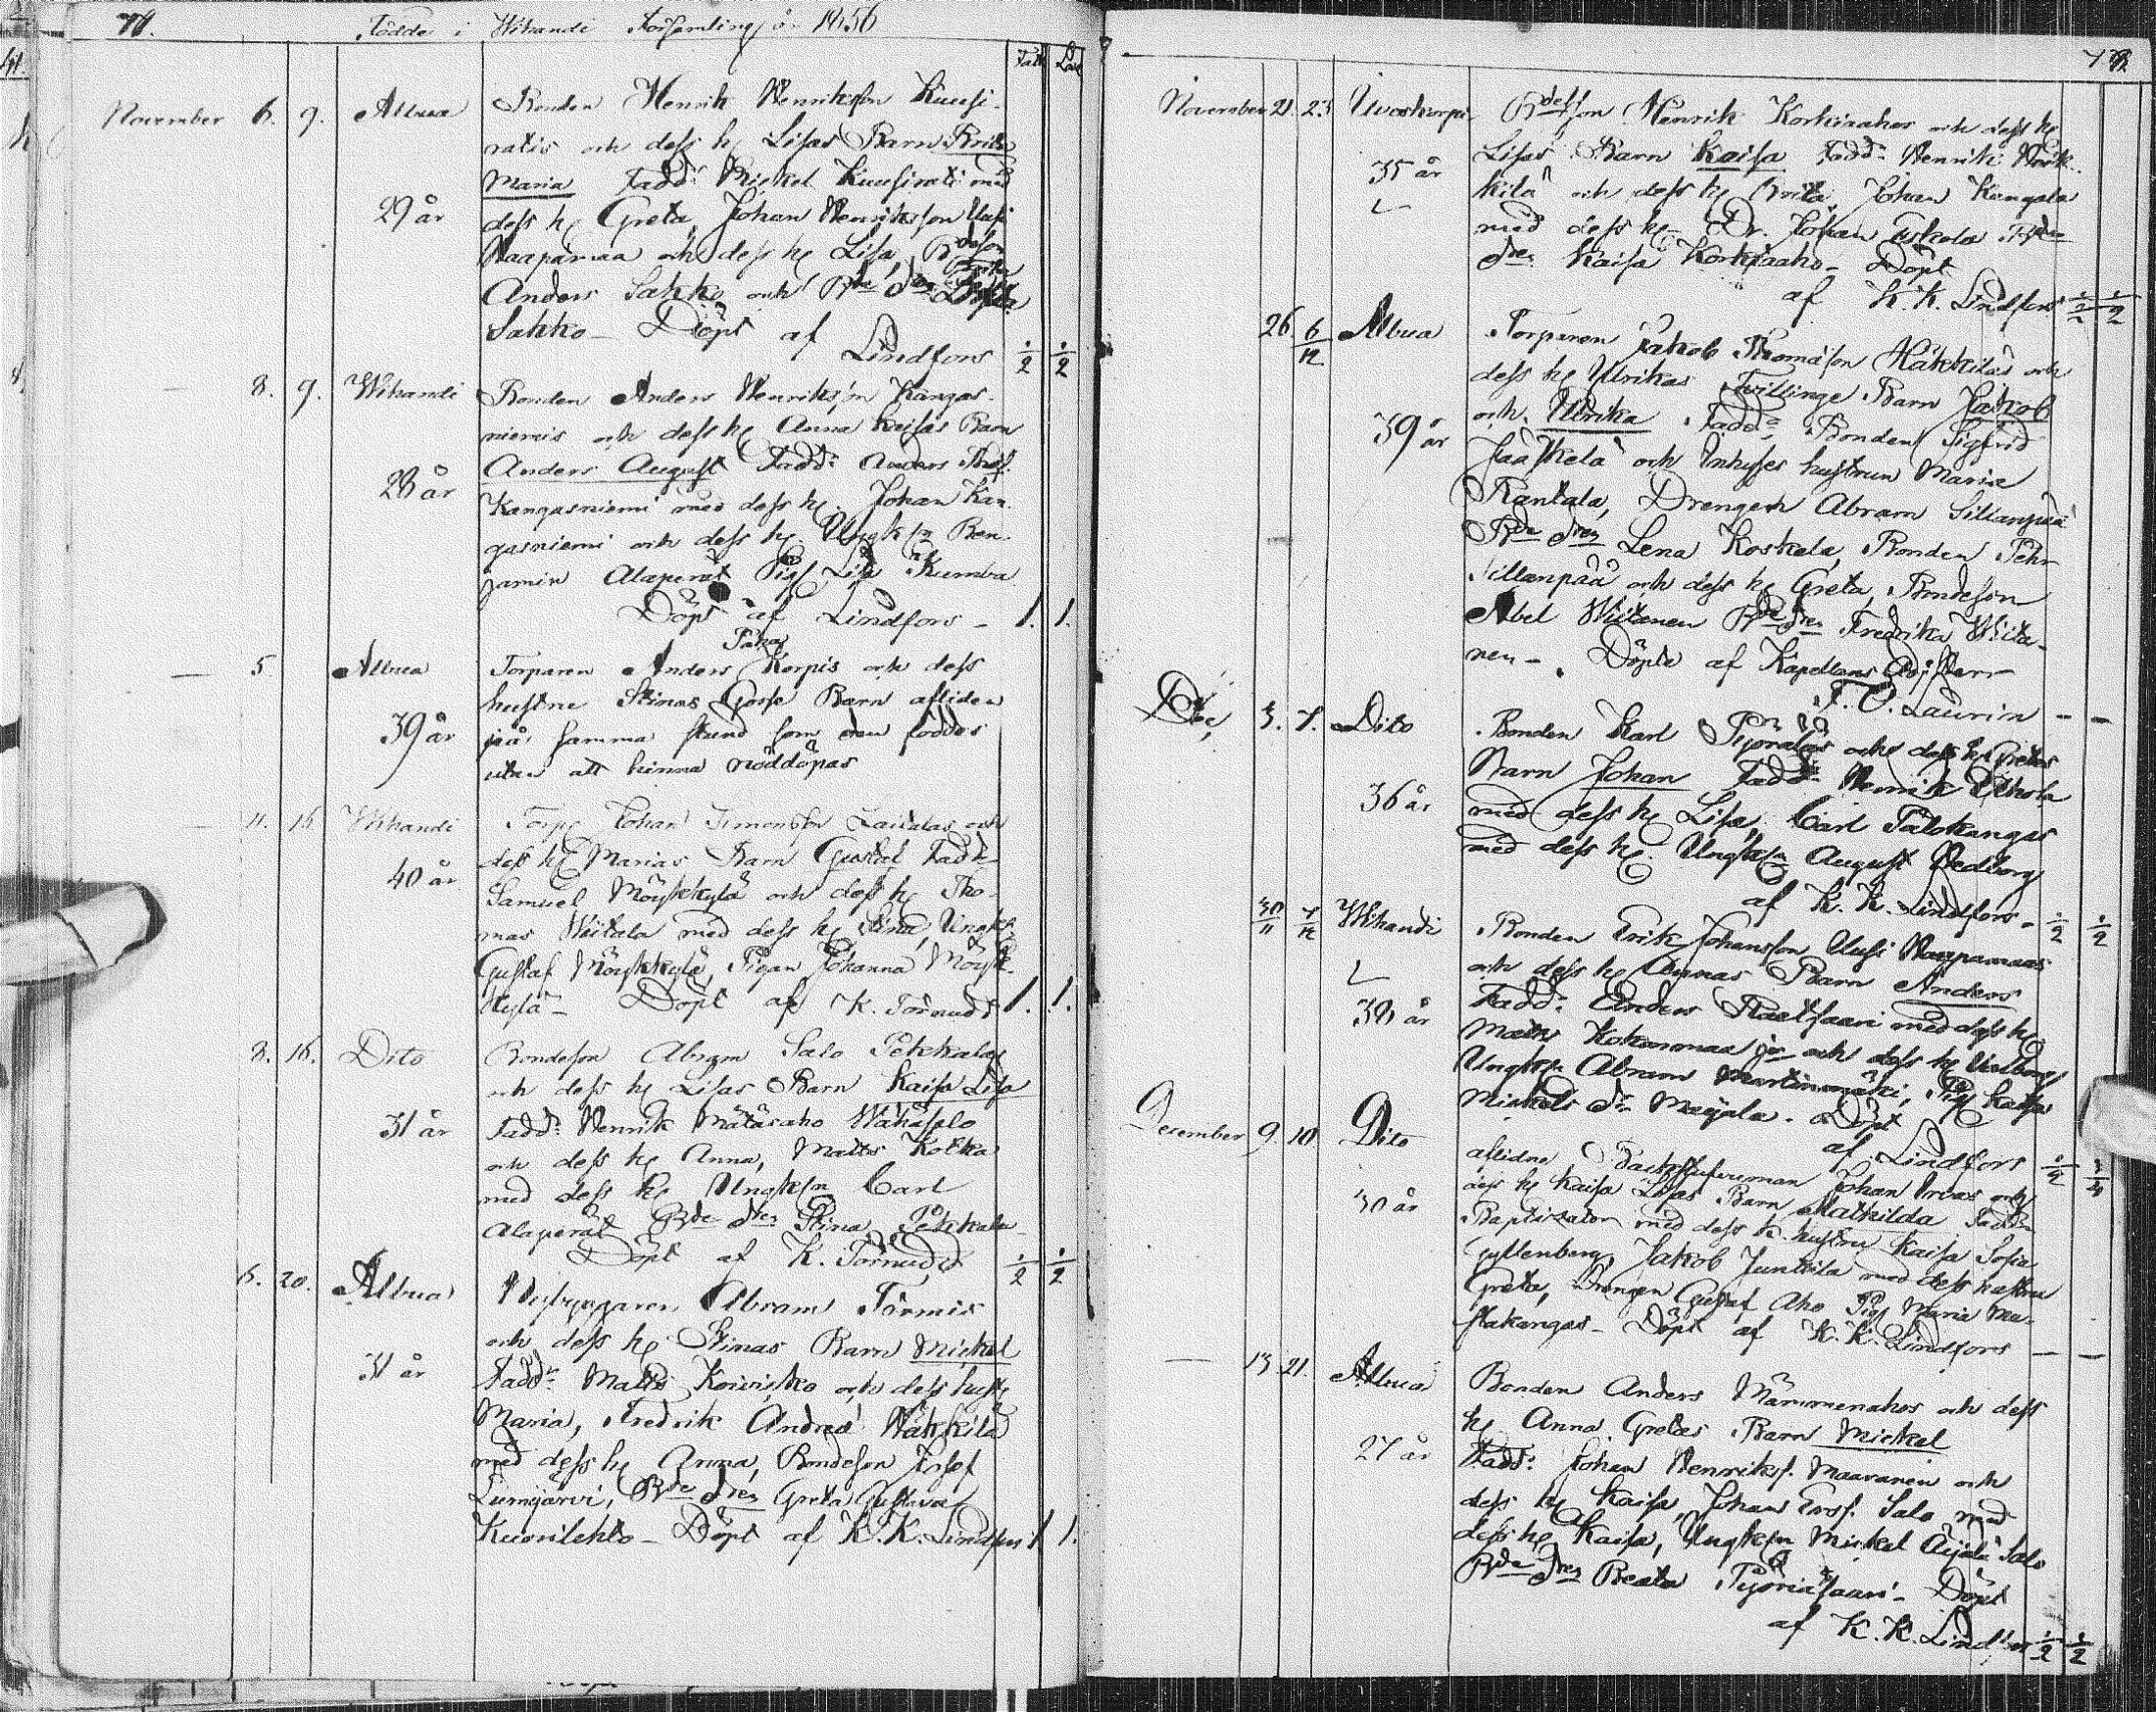 Födde i Wihandi Församling år 1856
November 6. 9. Albua Bonden Henrik Henriksson Kuusi-
ratis och dess h. Lisas Barn Brita
Maria Fadd: Mickel Kuusirati med
29 år dess h. Greta, Johan Henriksson Uusi
Haapamaa och dess h. Lisa, Bdeson
Anders Sakko och Bde dren Brita
Sakko - Döpt af
Lindfors 1/2 1/2
8. 9. Wihandi Bonden Anders Henriksson Kangas-
niemis och dess h. Anna Kaisas Barn
Anders August Fadd: Anders
28 år Kangasniemi med dess h. Johan Kan-
gasniemi och dess h. Ungk:n Ben-
jamin Alaperät Pig. Lisa Kumba
Döpt af Lindfors - 1. 1.
5. Albua Torparen Anders Korpis och dess
hustru Stinas Gosse Barn afliden
39 år på samma stund som den föddes
utan att hinna nöddöpas
11. 16 Wihandi Torp. Johan Simonsson Lailalas och
dess h. Marias Barn Gustaf Fadd:
40 år Samuel Möykkylä och dess h. Tho-
mas Wiitala med dess h. Stina, Ungk:
Gustaf Möykkylä, Pigan Johanna Möyk-
kylä - Döpt af K. Törnudd 1. 1.
8. 16. Dito Bondeson Abram Salo Pekkalas
och dess h. Lisas Barn Kaisa Lisa
31 år Fadd: Henrik Mätäsaho Wähäsalo
och dess h. Anna, Matts Kotka
med dess h. Ungk:n Carl
Alaperät Bde dren Stina Pekkala
Döpt af K. Törnudd 1/2 1/2
15. 20. Albua Nybyggaren Abram Törmis
och dess h. Stinas Barn Mickel
31 år Fadd: Matts Koivisto och dess hust.
Maria, Fredrik Andreas Häkkilä
med dess h. Anna, Bondeson Josef
Lumijärvi, Bde dren Greta Gustava
Kuonilehto - Döpt af K.K. Lindfors 1 1.
November 21. 23 Bdesson Henrik Korkiaahos och dess h.
Lisas Barn Kaisa Fadd: Henrik
35 år och dess h. Brita, Johan Kangala
med dess h. Dr. Johan
dren Kaisa Korkiaaho - Döpt
af K.K. Lindfors 1/2 1/2
26 6/12 Albua Torparen Jakob Thomasson Häkkiläs och
dess h. Ulrikas Tvillinge Barn Jakob
39 år och Ulrika Fadd: Bonden Sigfrid
Jääskelä och Inhyses hustrun Maria
Rantala, Drengen Abram Sillanpää
Bde dren Lena Koskela, Bonden Pehr
Sillanpää och dess h. Greta, Bondeson
Abel Wiitanen Bde dren Fredrika Wiita-
nen - Döpte af Kapellans Adj.
F. O. Laurin - -
Dec. 3. 7. Dito Bonden Karl Pyöräläs och dess h. Gretas
Barn Johan Fadd: Henrik
36 år med dess h. Lisa, Carl Palokangas
med dess h. Ungk:n August Hedberg
af K. K. Lindfors - 1/2 1/2
30/11 7/12 Wihandi Bonden Erik Johansson Uusi Haapamaas
och dess h. Annas Barn Anders
38 år Fadd: Anders Raatsaari med dess h.
Matts Kokonmaa jr och dess h. Walborg
Ungk:n Abram Martinmäki, Pig. Kaisa
Mickels dr Majala - Döpt
af Lindfors 1/2
December 9. 10. Dito aflidne Johan och
30 år dess h. Kaisa Lisas Barn Mathilda Fadd:
med dess h. hustru Kaisa Sofia
Gyllenberg, Jakob Junttila med dess hustru
Greta, Drengen Gustaf Aho Pig. Maria Mu-
stakangas - Döpt af K. K. Lindfors - -
13. 21. Albua Bonden Anders Mämmenahos och dess
h. Anna Gretas Barn Mickel
27 år Fadd: Johan Henriks. Maaranen och
dess h. Kaisa, Johan Salo med
dess h. Kaisa, Ungk:n Mickel Äijälä Salo
Bde dren Beata Pyöriäsaari - Döpt
af K. K. Lindfors 1/2 1/2